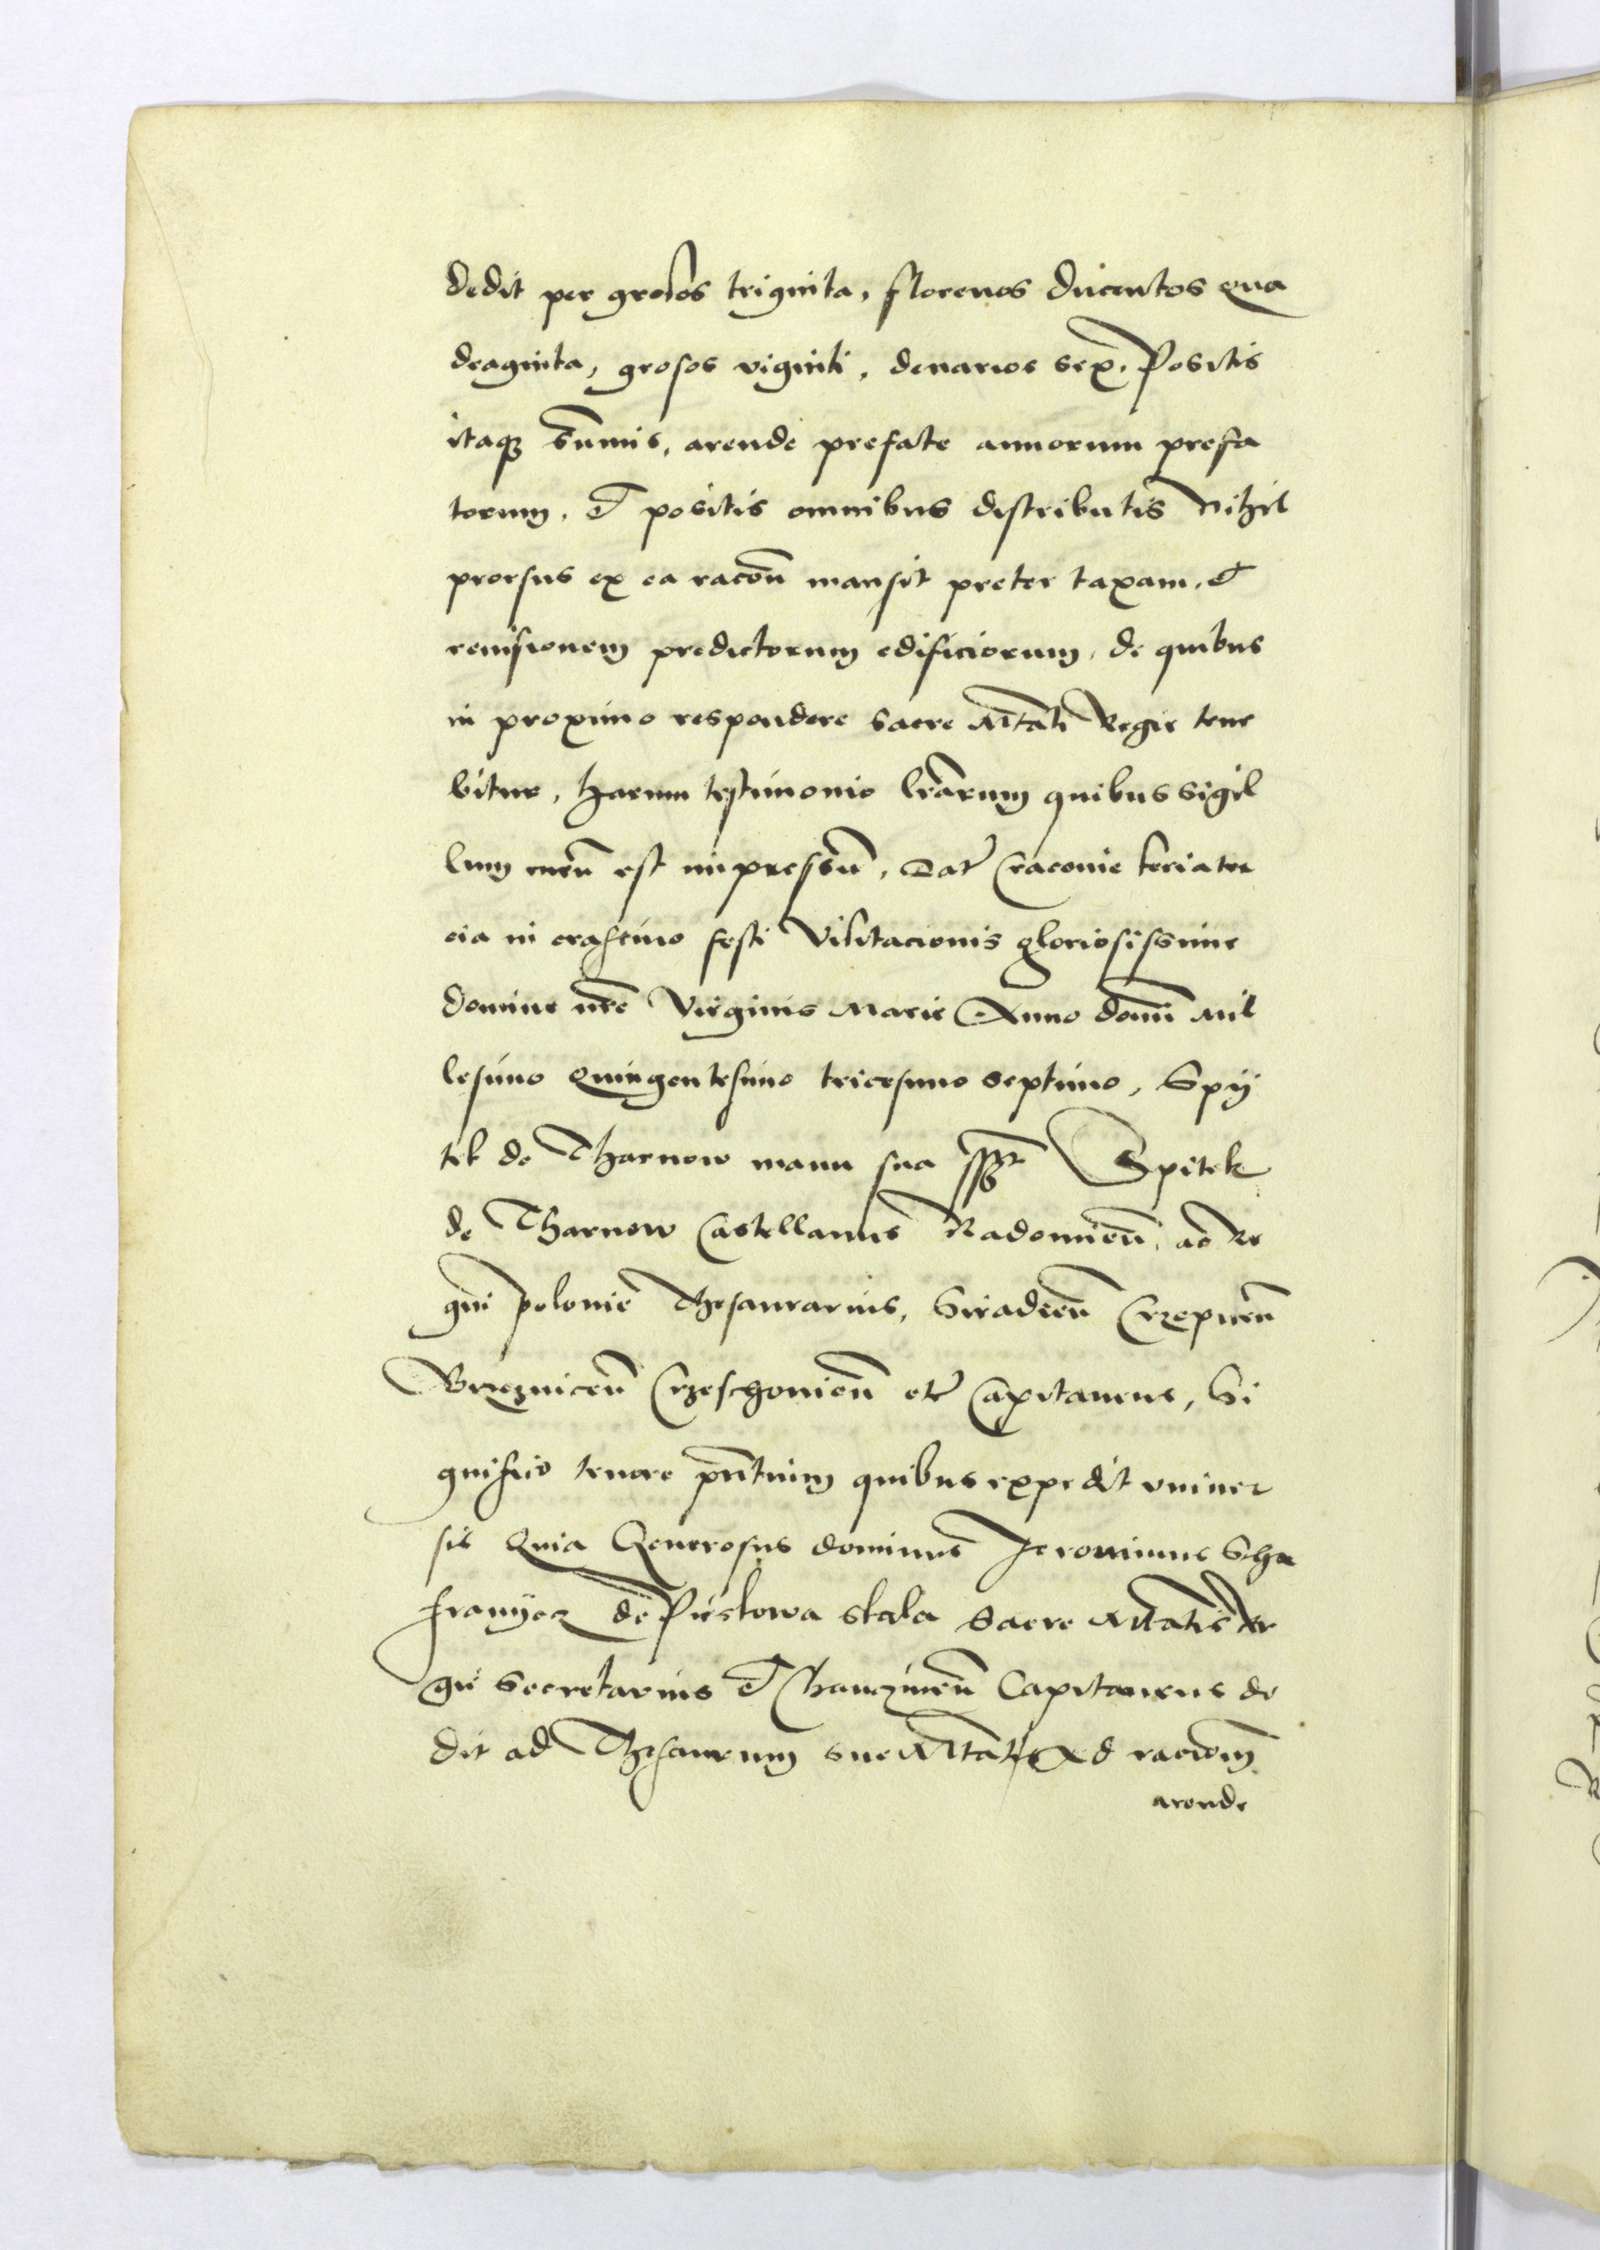 dedit per grosos triginta, florenos ducentos qua
draginta, grosos viginti, denarios sex. Positis
itaq3 sūmis, arende prefate annorum prefa
torum, et positis omnibus distributis Nihil
prorsus ex ea racōn mansit preter taxam, et
reuisionem predictorum edificiorum, de quibus
in proximo respondere sacre Mtāti Regie tene
bitur, harum testimonio lrārum quibus sigil
lum meū est impressū, Dat Cracouie feria ter
cia in crastino festi Visitacionis gloriosissime
Domine nrē Virginis Marie Anno domī Mil
lesimo Quingentesimo tricesimo septimo, Spy
tek de Tharnow manu sua sst Spitek
de Tharnow Castellanus Radomieñ, ac Re
gni Polonie Thesaurarius, Siradieñ Crzepiceñ
Brzezniceñ Crzeschowieñ etc Capitaneus, Si
gnifico tenore pñtuim quibus expedit vniuer
sis Quia Generosus dominus Jeronimus Scha
franyecz de Pieskowa skala Sacre Mtātis Re
gie Secretarius et Chanczineñ Capitaneus de
dit ad Thesaurum sue Mtātis Ad racionem
arende